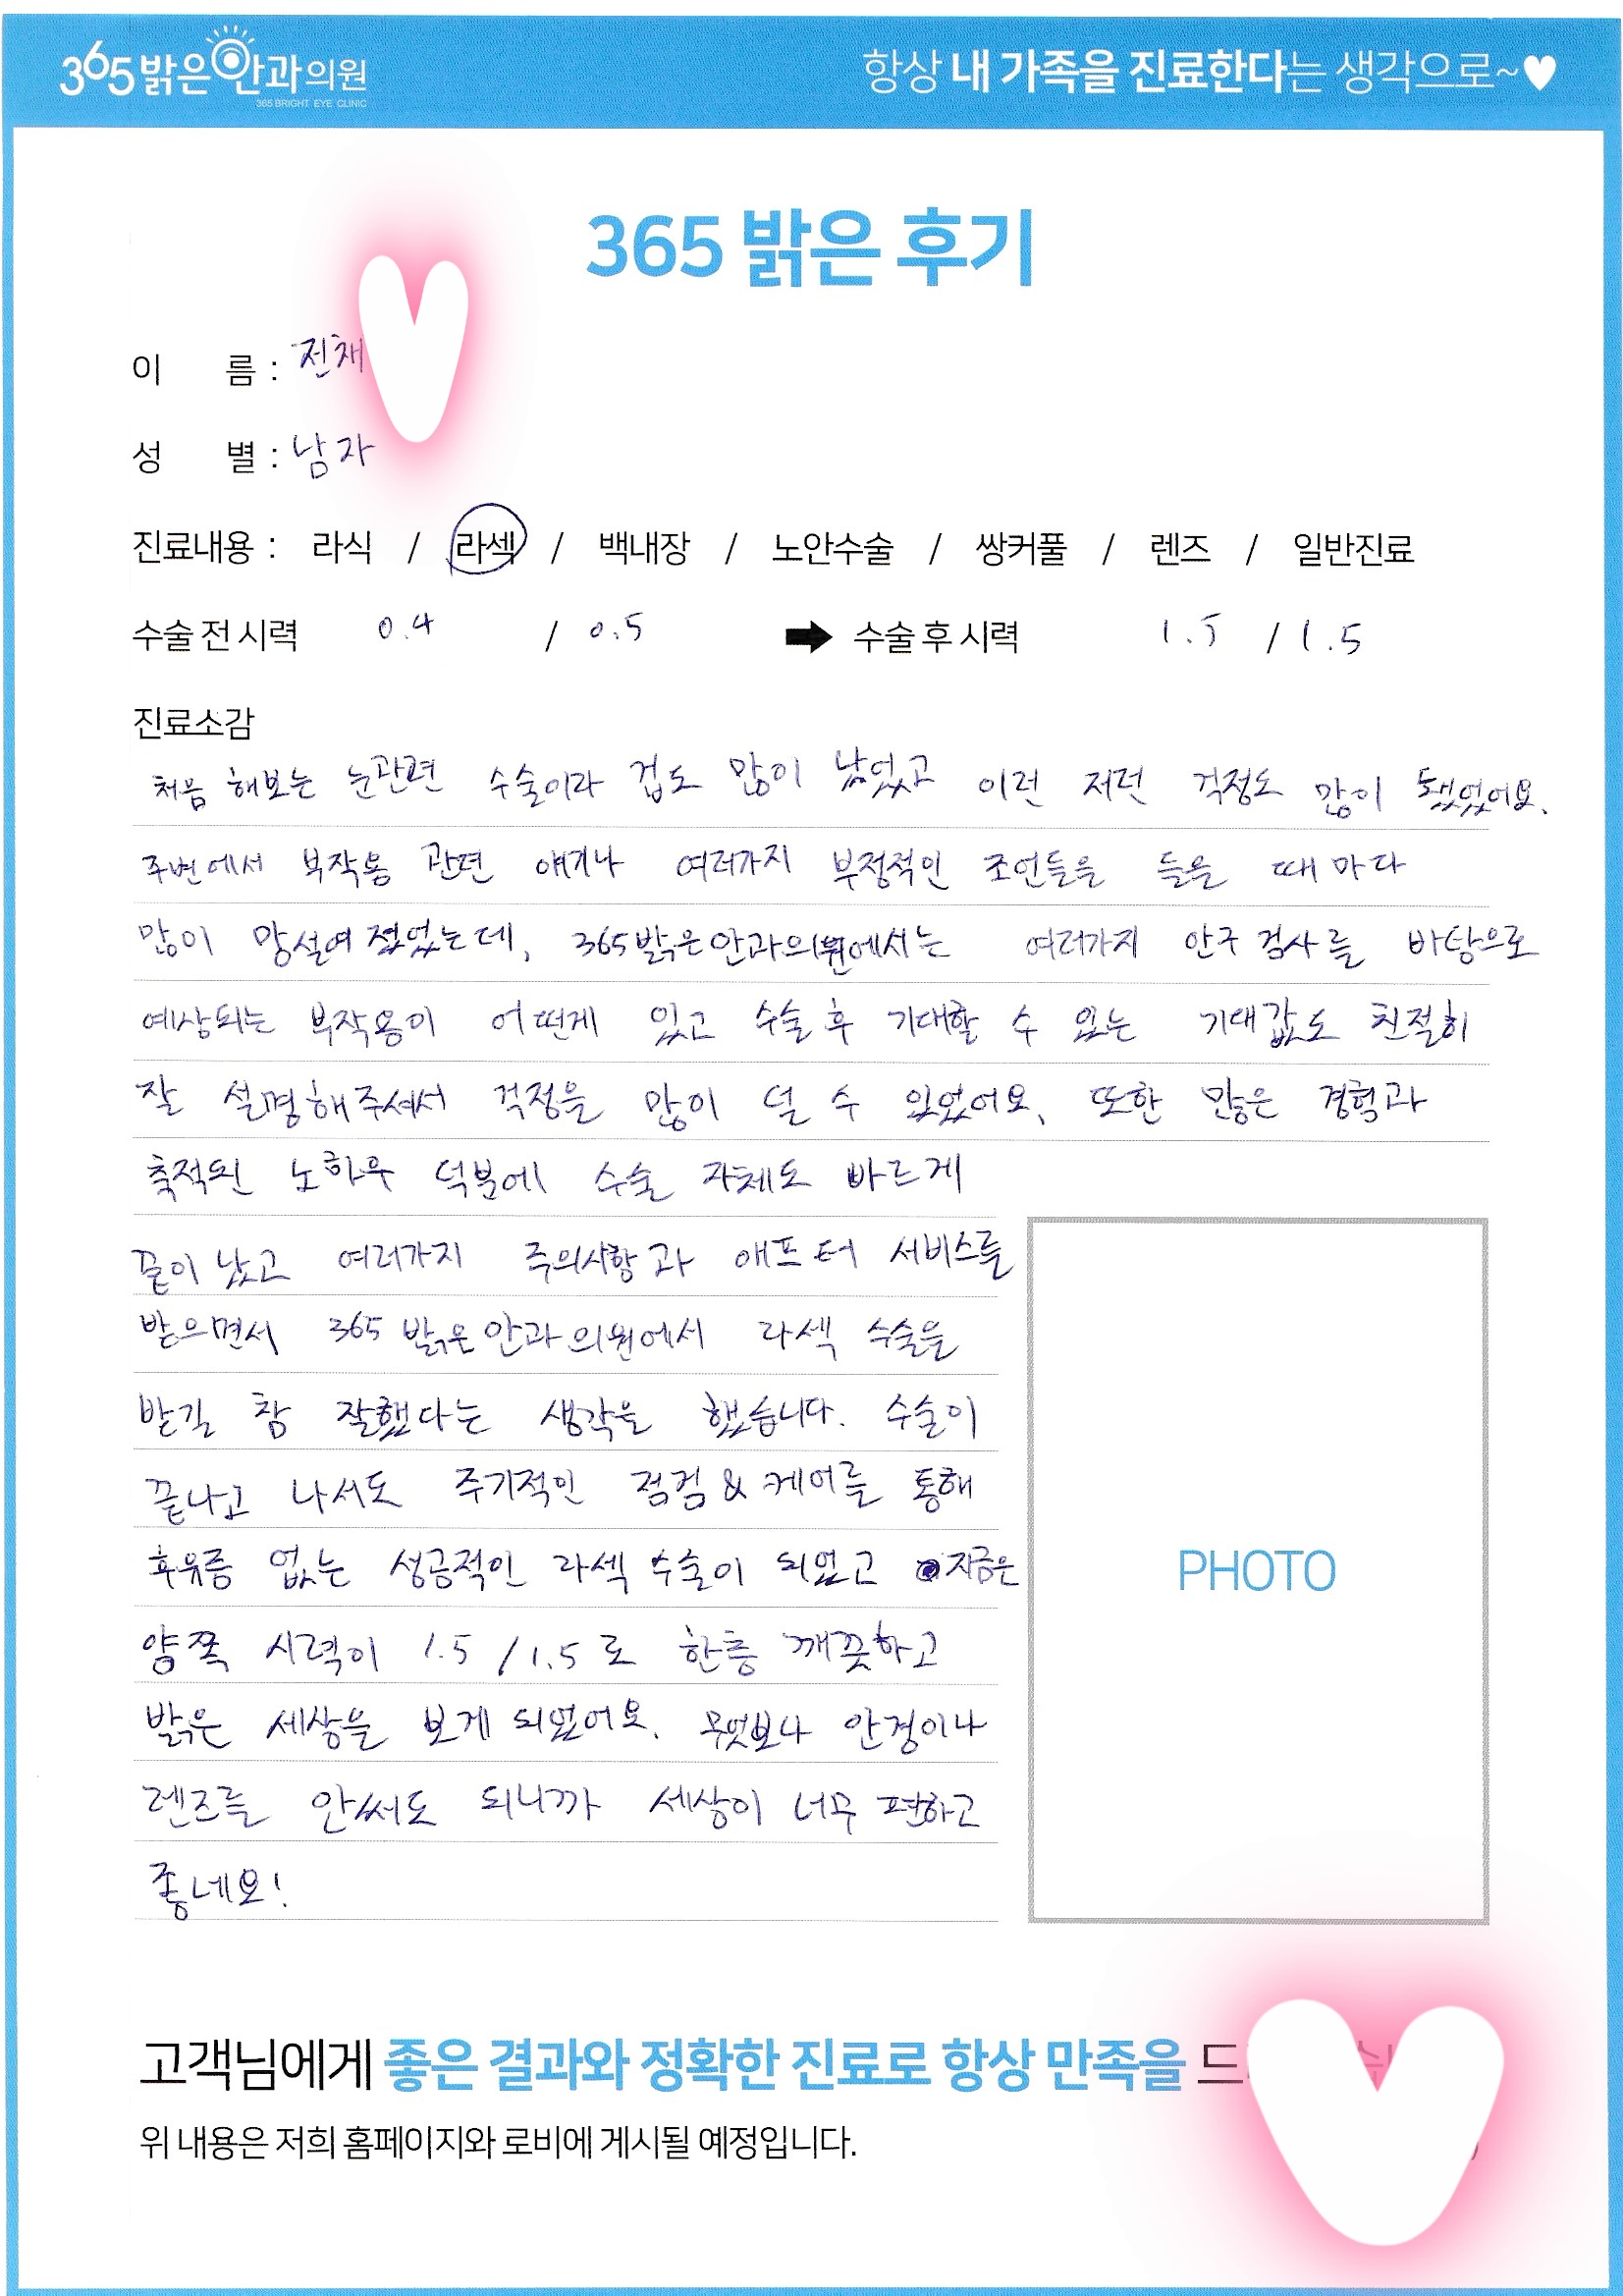 365밝은안과의원
365 BRIGHT EYE CLINIC
항상 내 가족을 진료한다는 생각으로~♥
365 밝은 후기
이 름 : 전채
성 별 : 남자
진료내용 : 라식 / 라섹 / 백내장 / 노안수술 / 쌍커풀 / 렌즈 / 일반진료
수술 전 시력 0.4 / 0.5 ➡ 수술 후 시력 1.5 / 1.5
진료소감
처음 해보는 눈관련 수술이라 겁도 많이 났었고 이런 저런 걱정도 많이 됐었어요.
주변에서 부작용 관련 얘기나 여러가지 부정적인 조언들을 들을 때 마다
많이 망설여 졌었는데, 365밝은안과의원에서는 여러가지 안구 검사를 바탕으로
예상되는 부작용이 어떤게 있고 수술 후 기대할 수 있는 기대값도 친절히
잘 설명해주셔서 걱정을 많이 덜 수 있었어요. 또한 많은 경험과
축적된 노하우 덕분에 수술 자체도 빠르게
끝이 났고 여러가지 주의사항과 애프터 서비스를
받으면서 365 밝은안과의원에서 라섹 수술을
받길 참 잘했다는 생각을 했습니다. 수술이
끝나고 나서도 주기적인 점검 & 케어를 통해
후유증 없는 성공적인 라섹 수술이 되었고 지금은
양쪽 시력이 1.5 / 1.5 로 한층 깨끗하고
밝은 세상을 보게 되었어요. 무엇보다 안경이나
렌즈를 안써도 되니까 세상이 너무 편하고
좋네요!
PHOTO
고객님에게 좋은 결과와 정확한 진료로 항상 만족을 드
위 내용은 저희 홈페이지와 로비에 게시될 예정입니다.